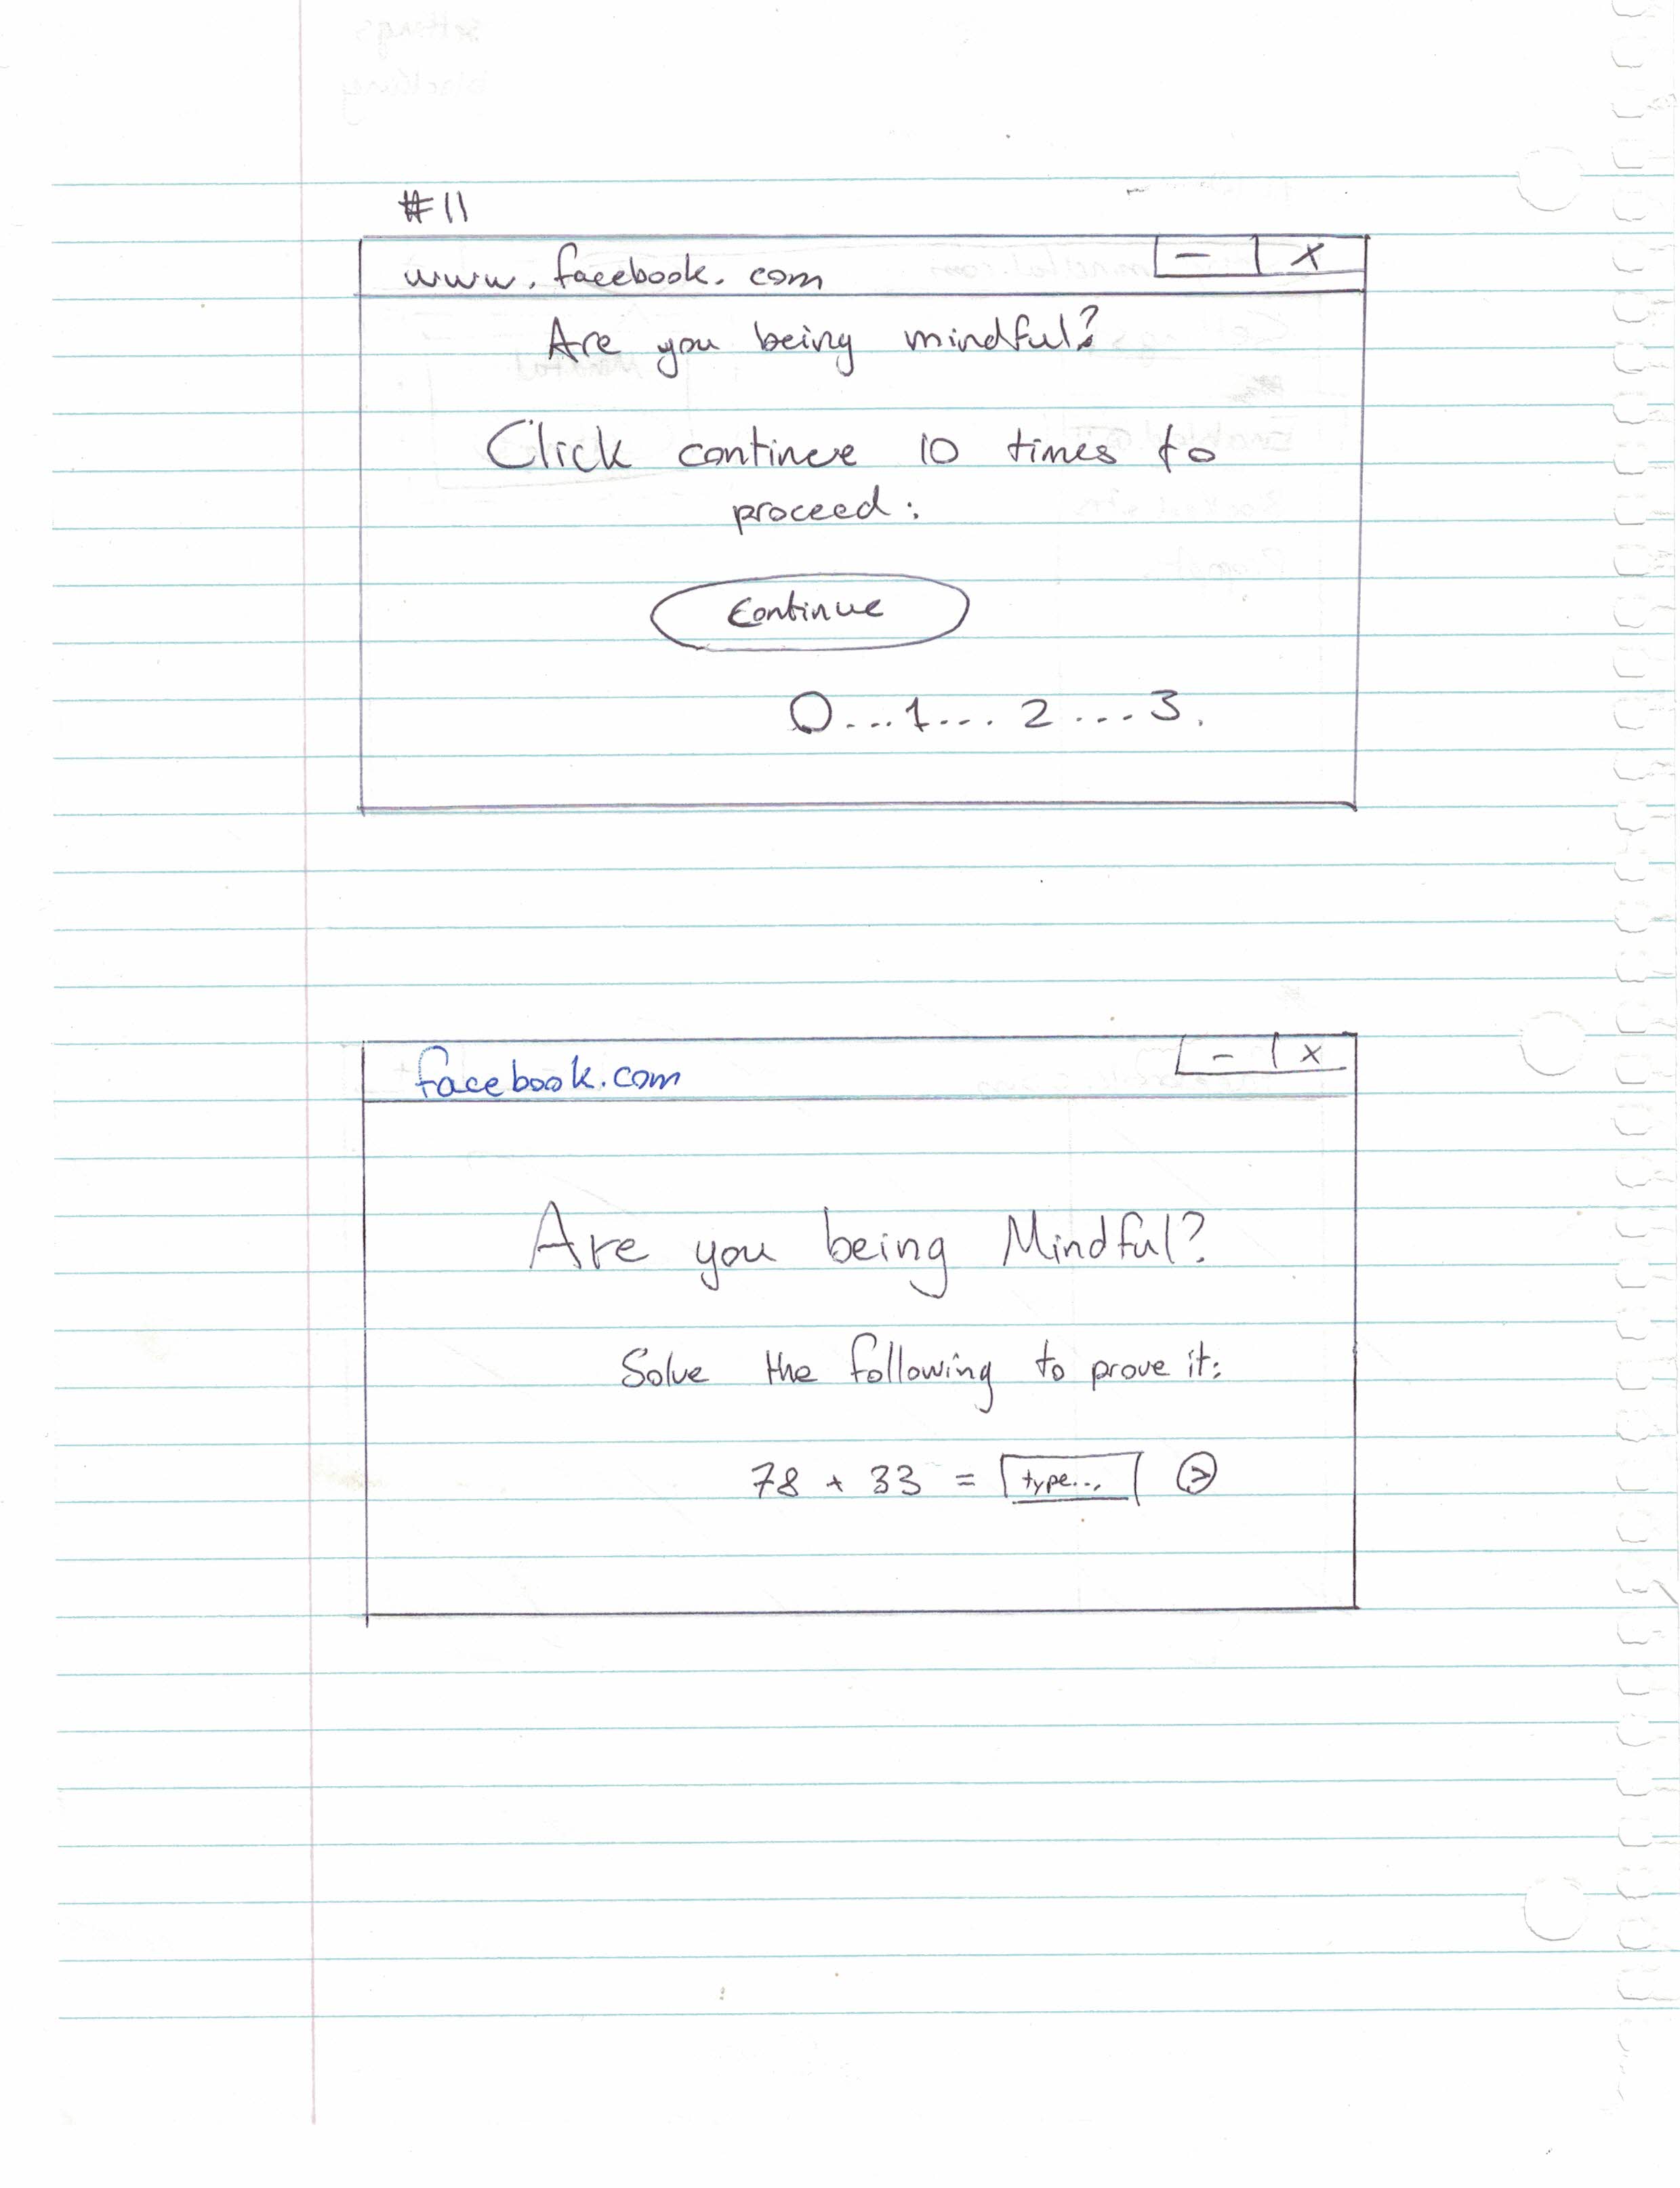 #11
www.facebook.com
- x
Are you being mindful?
Click continue 10 times to
proceed:
Continue
0...1... 2 ... 3.
facebook.com
- x
Are you being Mindful?
Solve the following to prove it:
78 + 33 = type... >